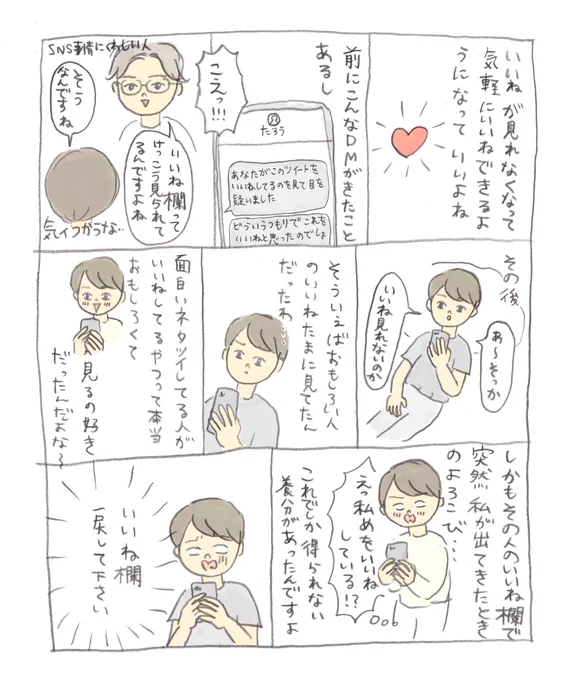 いいねが見れなくなって
気軽にいいねできるよ
うになっていいよね
前にこんなDMがきたこと
あるし
こえっ!!!
たろう
あなたがこのツイートを
いいねしてるのを見て目を
疑いました
どういうつもりでこれを
いいねと思ったのでしょ
SNS事情にくわしい人
いいね欄って
けっこう見られて
るんですよね
そう
なんですね
気イつかうな…
その後
あ〜そっか
いいね見れないのか
そういえばおもしろい人
のいいねたまに見てたん
だったわ…
面白いネタツイしてる人が
いいねしてるやつって本当
おもしろくて
見るの好き
だったんだよな〜
しかもその人のいいね欄で
突然私が出てきたとき
のよろこび…
えっ私めをいいね
している!?
これでしか得られない
養分があったんですよ
いいね欄
戻して下さい